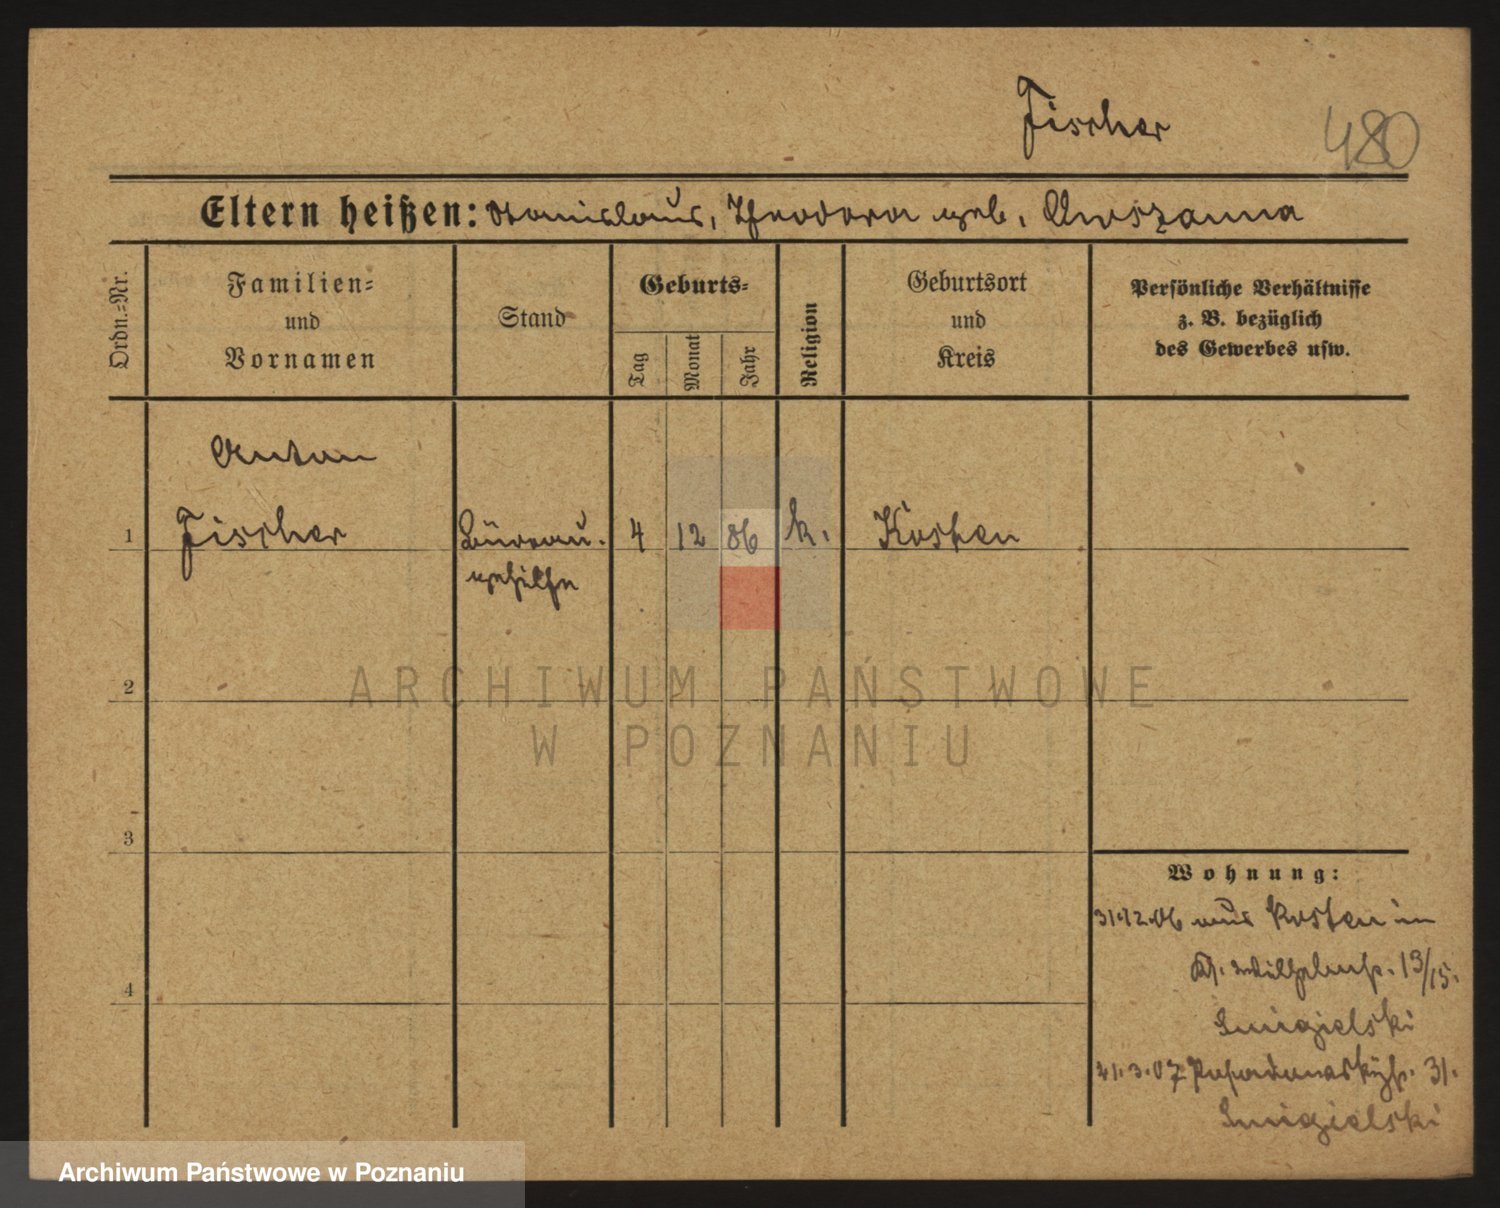 Fischer
480
Eltern heißen: Stanislaus, Theodora geb.
Ordn.-Nr.
Familien- und Vornamen
Stand
Geburts-
Tag
Monat
Jahr
Religion
Geburtsort und Kreis
Persönliche Verhältnisse
z. B. bezüglich
des Gewerbes usw.
Anton
1 Fischer Büreau- 4 12 86 k. Kosten
gehilfe
2
3
4
Wohnung:
31.12.06 aus Kosten in
13/15.
Smigielski
3.07 31.
Smigielski
ARCHIWUM PAŃSTWOWE
W POZNANIU
Archiwum Państwowe w Poznaniu